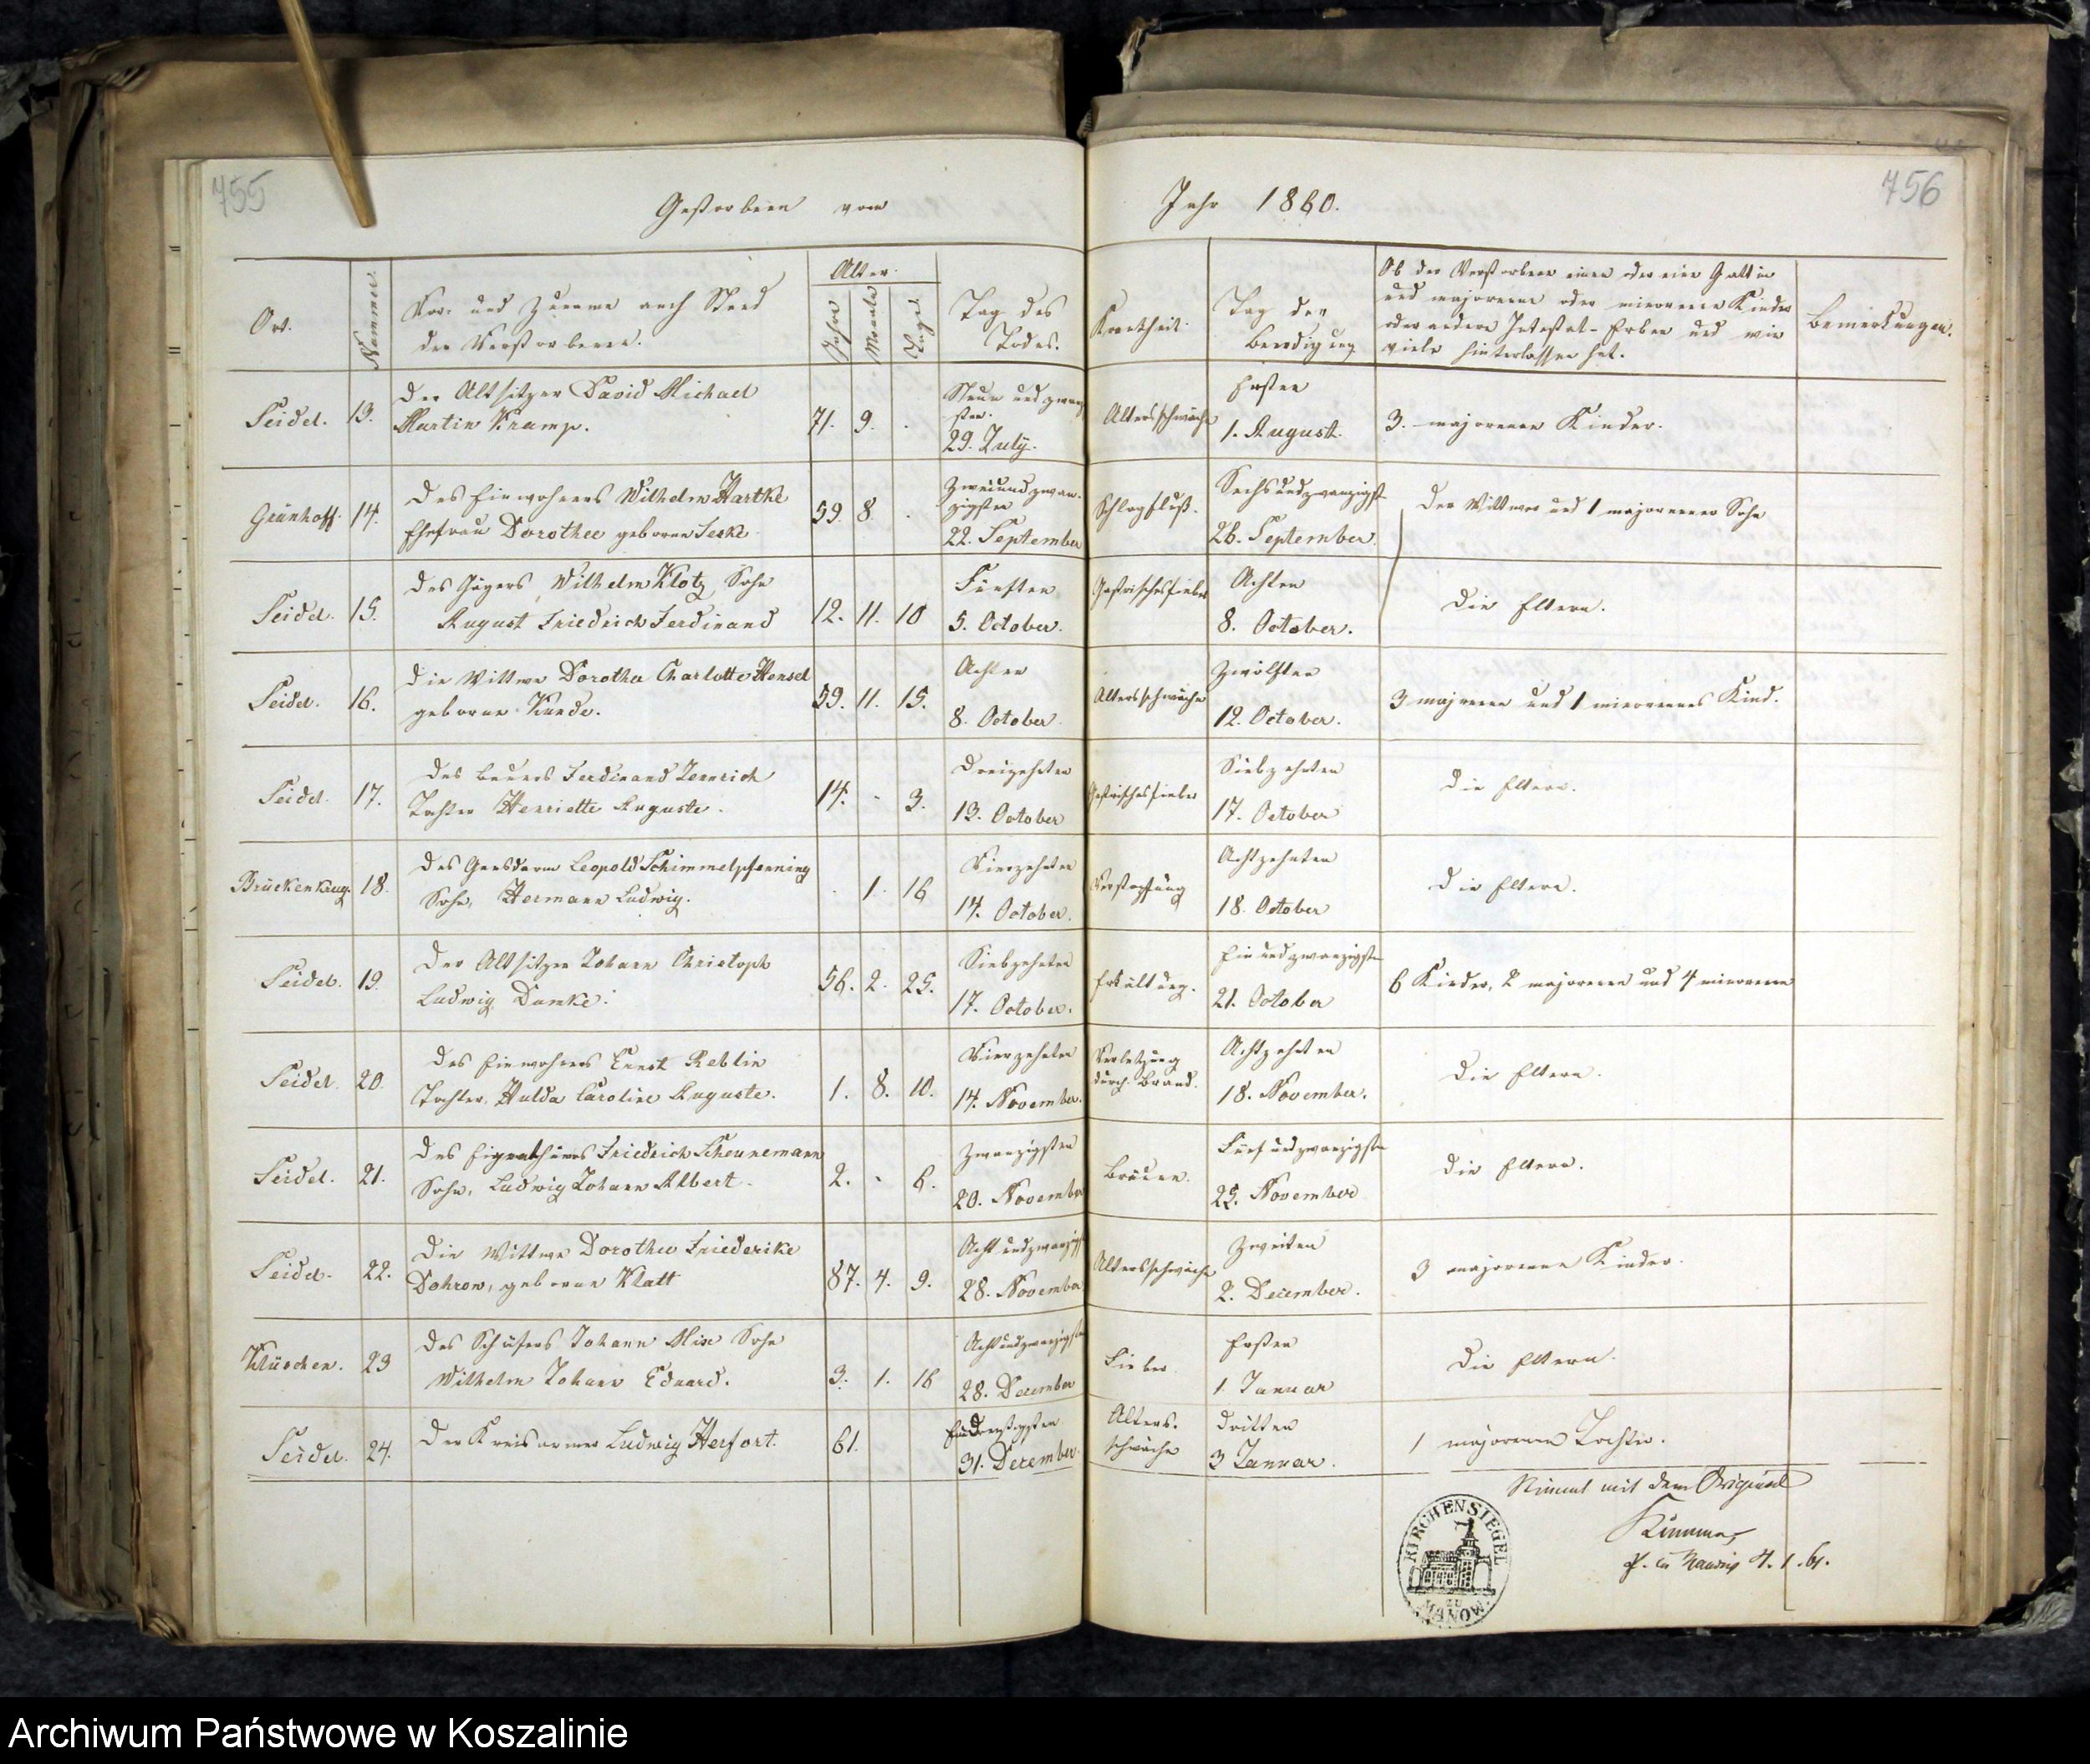 755
756
Gestorben vom
Jahr 1860.
Ort.
Nummer.
Vor- und Zuname auch Stand
der Verstorbenen.
Alter.
Jahre
Monate
Tage
Tag des
Todes.
Krankheit.
Tag der
Beerdigung
Ob der Verstorbene einen oder eine Gattin
und majorenne oder minorenne Kinder
oder andere Intestat-Erben und wie
viele hinterlassen hat.
Bemerkungen.
Seidel. 13.
Der Altsitzer David Michael
Martin Kramp.
71. 9. .
Neun und zwanzig
sten.
29. July.
Altersschwäche
Ersten
1. August.
3. majorenne Kinder.
Grünhoff. 14.
Des Einwohners Wilhelm Hartke
Ehefrau Dorothee geborene Jeske
59. 8 .
Zweiundzwan-
zigsten
22. September
Schlagfluß.
Sechsundzwanzigst
26. September.
Der Wittwer und 1 majorenner Sohn
Seidel. 15.
Des Jägers, Wilhelm Klotz, Sohn
August Friedrich Ferdinand
12. 11. 10
Fünften
5. October.
Gastrisches Fieber
Achten
8. October.
Die Eltern.
Seidel. 16.
Die Wittwe Dorothea Charlotte Hensel
geborne Kunde.
59. 11. 15.
Achten
8. October
Altersschwäche
Zwölften
12. October.
3 majorenne und 1 minorennes Kind.
Seidel. 17.
Des Bauers Ferdinand Jennrich
Tochter Henriette Auguste.
14. - 3.
Dreizehnten
13. October
Gastrisches Fieber
Siebzehnten
17. October
Die Eltern.
Brückenkrug. 18.
Des Gensdarm Leopold Schimmelpfenning
Sohn, Hermann Ludwig.
. 1. 16
Vierzehnten
14. October.
Verstopfung
Achtzehnten
18. October
Die Eltern.
Seidel. 19.
Der Altsitzer Johann Christoph
Ludwig Damke.
56. 2. 25.
Siebzehnten
17. October.
Erkältung.
Einundzwanzigsten
21. October
6 Kinder, 2 majorenne und 4 minorenne
Seidel. 20.
Des Einwohners Ernst Reblin
Tochter, Hulda Caroline Auguste.
1. 8. 10.
Vierzehnten
14. November.
Verletzung
durch Brand.
Achtzehnten
18. November.
Die Eltern.
Seidel. 21.
Des Eigenthümers Friedrich Scheunemann
Sohn, Ludwig Johann Albert.
2. - 6.
Zwanzigsten
20. November
Bräune.
Fünfundzwanzigsten
25. November
Die Eltern.
Seidel. 22.
Die Wittwe Dorothee Friederike
Dohrow, geborne Klatt
87. 4. 9.
Achtundzwanzigst
28. November
Altersschwäche
Zweiten
2. December.
3 majorenne Kinder.
Klüschen. 23
Des Schäfers Johann Mix Sohn
Wilhelm Johann Eduard.
3. 1. 16
Achtundzwanzigsten
28. December
Fieber
Ersten
1 Januar
Die Eltern.
Seidel. 24.
Der Kreisarmer Ludwig Herfort.
61.
Eindreißigsten
31. December.
Alters-
schwäche
Dritten
3 Januar.
1 majorenne Tochter.
Stimmt mit dem Original
4. 1. 61.
KIRCHENSIEGEL
Archiwum Państwowe w Koszalinie